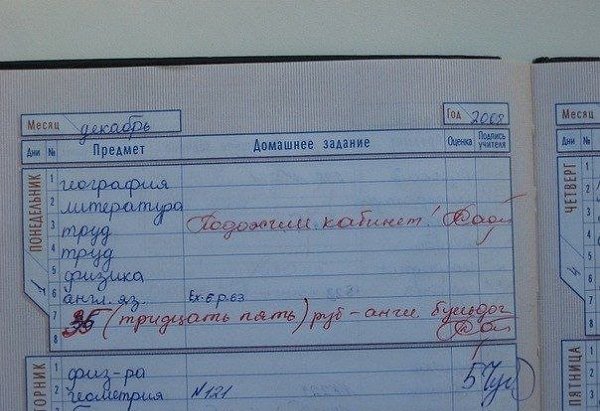 Месяц декабрь Год 2008
Дни № Предмет Домашнее задание Оценка Подпись учителя
ПОНЕДЕЛЬНИК
1 география
2 литература
3 труд Подожгли кабинет!
4 труд
5 физика
6 англ. яз. Ex. 6 p. 63
7 35 (тридцать пять) руб - англ. бульдог
8
ВТОРНИК
1 физ-ра 5
2 геометрия №121
ЧЕТВЕРГ
1
2
3
4
ПЯТНИЦА